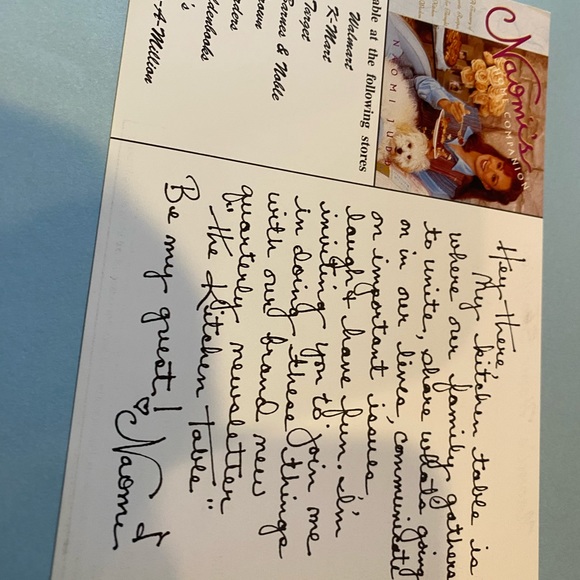 Naomi's
COMPANION
NAOMI JUDD
able at the following stores
Walmart
K-Mart
Target
Barnes & Noble
-A-Million
Hey there,
My kitchen table is
where our family gathers
to unite, share what's going
on in our lives, communicate
on important issues,
laugh & have fun. I'm
inviting you to join me
in doing these things
with our brand new
quarterly newsletter
"the Kitchen Table"
Be my guest!
Naomi